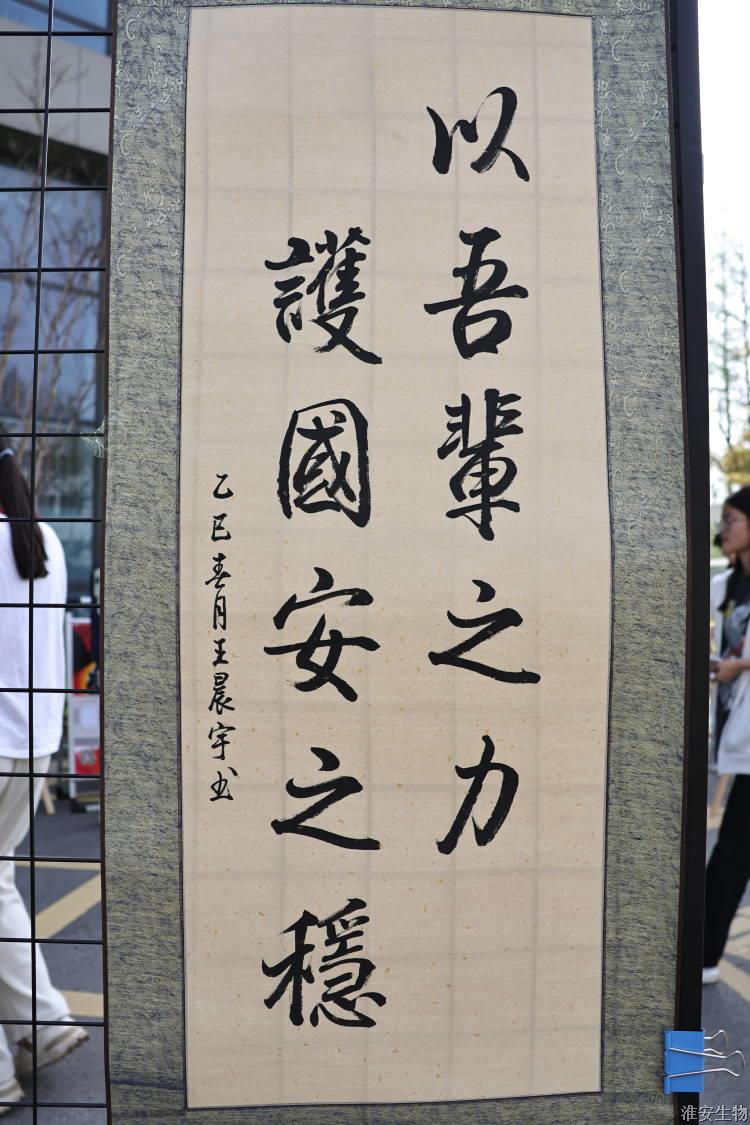 以吾輩之力
護國安之穩
乙巳春月王晨宇书
淮安生物